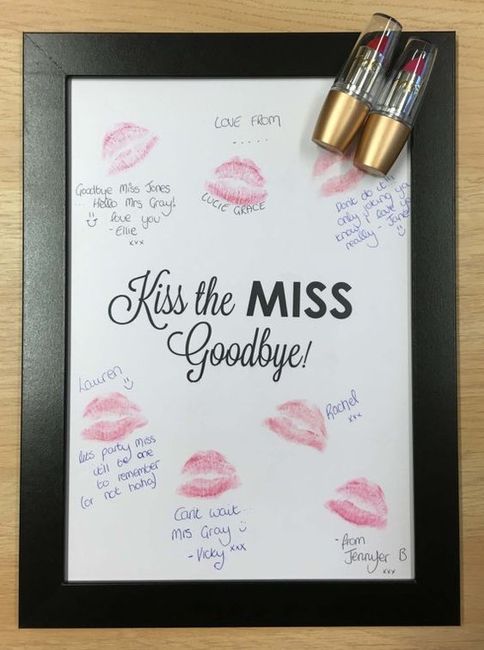 LOVE FROM
.....
LUCIE GRACE
Goodbye Miss Jones
... Hello Mrs Gray!
love you
- Ellie
xxx
Dont do it!!
only joking you
know i love you
really - Jane
Kiss the MISS
Goodbye!
Lauren
lets party Miss
it'll be one
to remember
(or not haha)
Rachel
xxx
Can't wait...
Mrs Gray
- Vicky xxx
- from
Jennyfer B
xxx